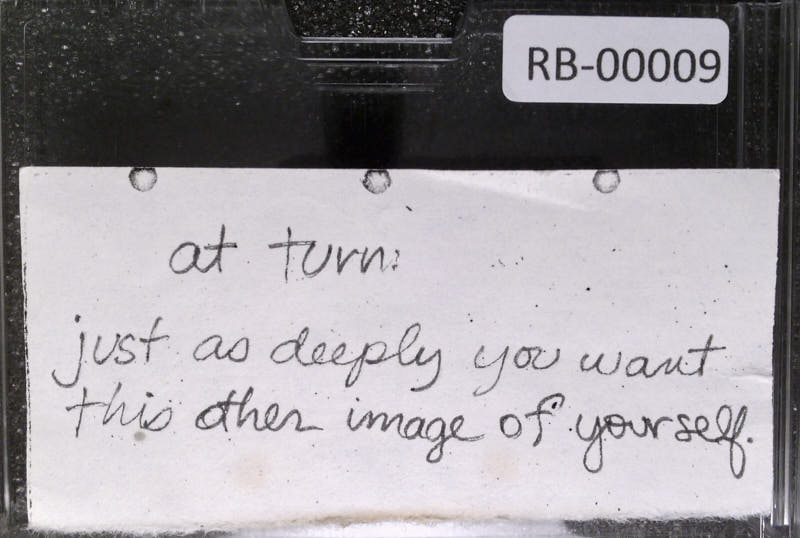 RB-00009
at turn:
just as deeply you want
this other image of yourself.